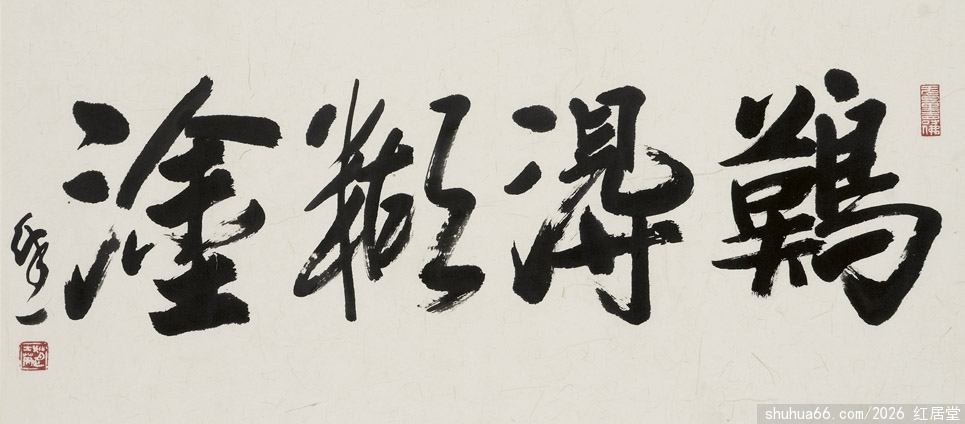 難得糊塗
shuhua66.com/2026 红居堂